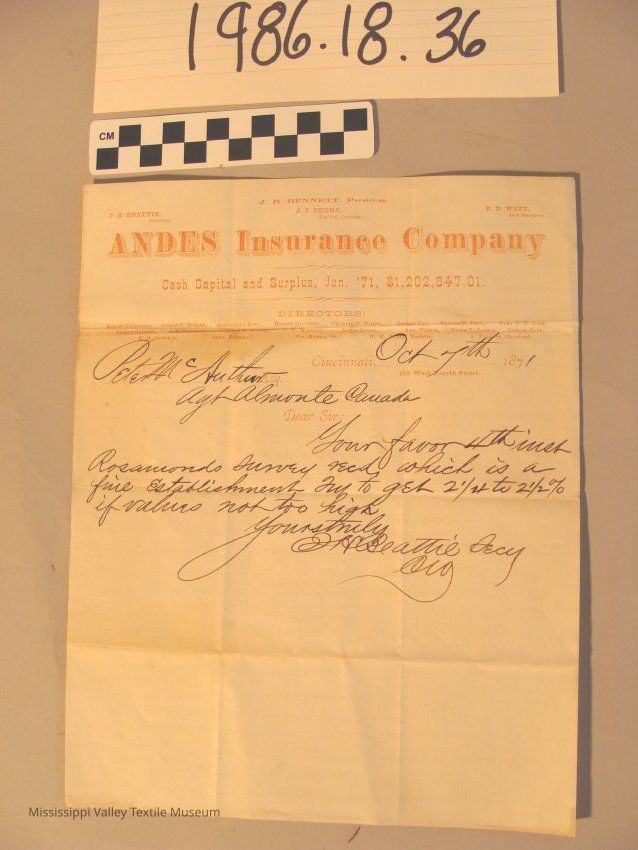 1986.18.36
CM
J. B. BENNETT, President.
J. H. BEATTIE, Secretary.
J. J. BERNE,
R. D. WEST, Ass't Secretary.
ANDES Insurance Company
Cash Capital and Surplus, Jan. '71, $1,202,847.01.
DIRECTORS:
Cincinnati, Oct 7th 1871
118 West Fourth Street.
Peter McArthur Esq.
Agt Almonte Canada
Dear Sir:
Your favor 4th inst
Rosamonds Survey recd, which is a
fine Establishment Try to get 2 1/4 to 2 1/2 %
if values not too high
Yours truly
J H Beattie Secy
Mississippi Valley Textile Museum